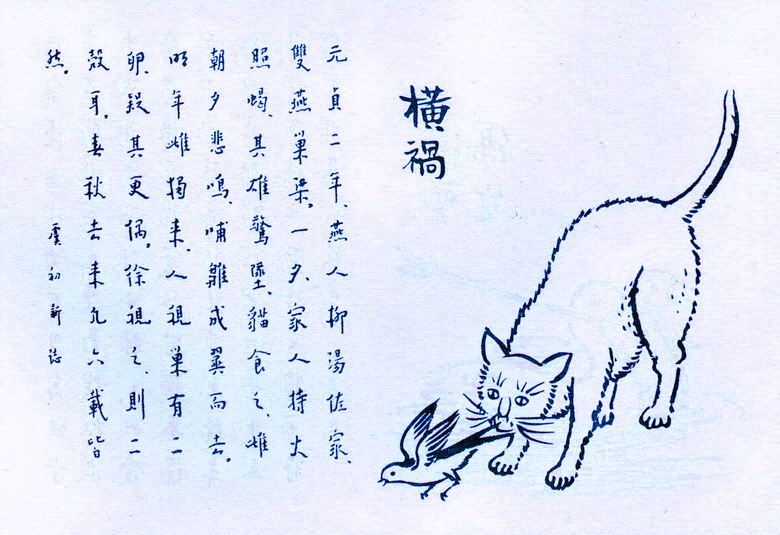 橫禍
元貞二年、燕人柳湯佐家、
雙燕巢梁。一夕、家人持火
照蝎、其雄驚墜、貓食之、雌
朝夕悲鳴、哺雛成翼而去。
明年雌獨來、人視巢有二
卵、疑其更偶。徐視之、則二
殼耳。春秋去來凡六載皆
然。
虞初新誌